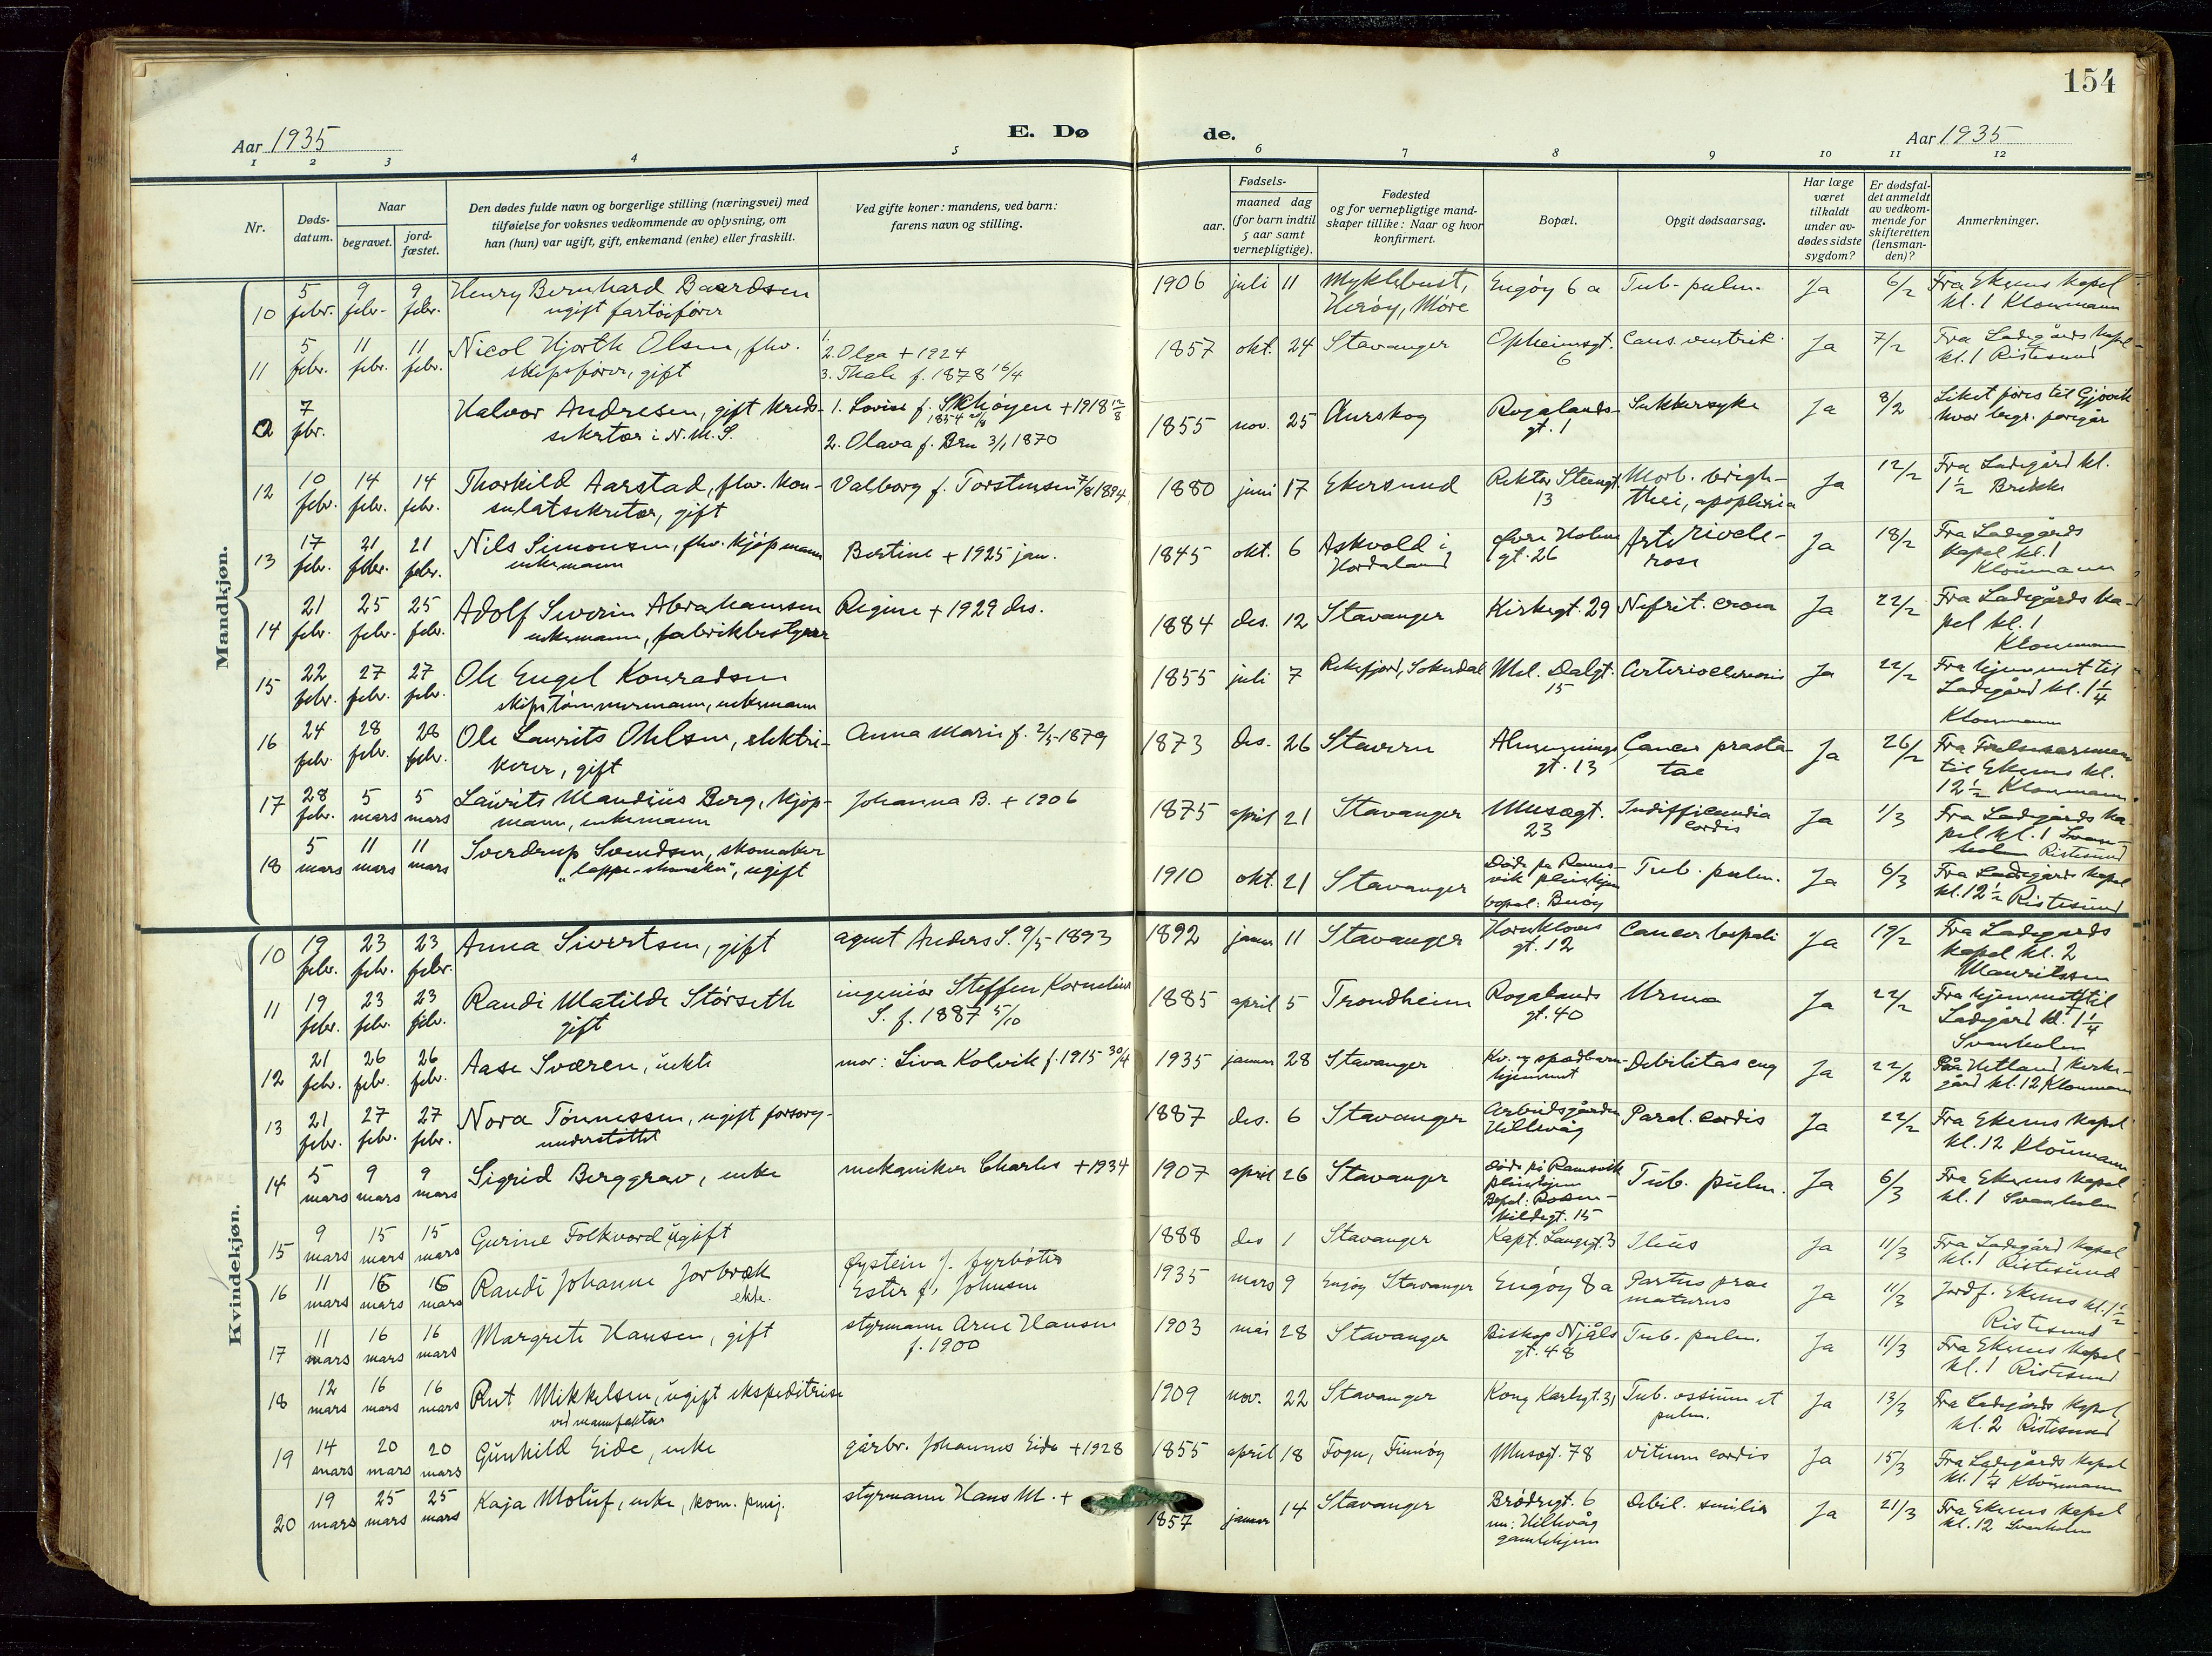 154
Aar 1935
E. Dø
de.
Aar 1935
1 2 3 4 5 6 7 8 9 10 11 12
Nr.
Døds-
datum.
Naar
begravet.
jord-
fæstet.
Den dødes fulde navn og borgerlige stilling (næringsvei) med
tilføielse for voksnes vedkommende av oplysning, om
han (hun) var ugift, gift, enkemand (enke) eller fraskilt.
Ved gifte koner: mandens, ved barn:
farens navn og stilling.
Fødsels-
aar.
maaned dag
(for barn indtil
5 aar samt
vernepligtige).
Fødested
og for vernepligtige mand-
skaper tillike: Naar og hvor
konfirmert.
Bopæl.
Opgit dødsaarsag.
Har læge
været
tilkaldt
under av-
dødes sidste
sygdom?
Er dødsfal-
det anmeldt
av vedkom-
mende for
skifteretten
(lensman-
den)?
Anmerkninger.
Mandkjøn.
10 5 febr. 9 febr. 9 febr. Henry Bernhard Baardsen
ugift fartöiförer
1906 juli 11 Myklebust,
Heröy, Möre
Engöy 6 a
Tub. pulm.
Ja 6/2 Fra Ekems kapel
kl. 1 Kloumann
11 5 febr. 11 febr. 11 febr. Nicol Hjorth Olsen, fhv.
skipsförer, gift
1.
2. Olga + 1924
3. Thale f. 1878 16/4
1857 okt. 24 Stavanger
Opheimsgt.
6
Canc. ventrik.
Ja 7/2 Fra Ladegårds kapel
kl. 1 Ristesund
2 7 febr. Halvor Andresen, gift kreds-
sekretær i N.M.S.
1. Lovise f. Skhöyen + 1918 12/8
2. Olava f. Bru 3/1 1870
1855 nov. 25 Aurskog
Rogalands-
gt. 1
Sukkersyke
Ja 8/2 Liket föres til Gjövik
hvor begr. foregår
12 10 febr. 14 febr. 14 febr. Thorkild Aarstad, fhv. kon-
sulatsekretær, gift
Valborg f. Torstensen 7/8 1894
1880 juni 17 Ekersund
Rektor Steengt.
13
Morb. brigh-
thei, apoplexia
Ja 12/2 Fra Ladegård kl.
1½ Brekke
13 17 febr. 21 febr. 21 febr. Nils Simonsen, fhv. kjöpmann
enkemann
Bertine + 1925 jan.
1845 okt. 6 Askvold i
Hordaland
Övre Holme
gt. 26
Arteriocle-
rose
Ja 18/2 Fra Ladegårds
kapel kl. 1
Kloumann
14 21 febr. 25 febr. 25 febr. Adolf Severin Abrahamsen
enkemann, fabrikbestyrer
Regine + 1929 des.
1884 des. 12 Stavanger
Kirkegt. 29
Nefrit. cron
Ja 22/2 Fra Ladegårds ka-
pel kl. 1
Kloumann
15 22 febr. 27 febr. 27 febr. Ole Engel Konradsen
skipstömmermann, enkemann
1855 juli 7 Rekefjord, Sokndal
Mel. Dalgt.
15
Arterioclerosis
Ja 22/2 Fra hjemmet til
Ladegård kl. 1¼
Kloumann
16 24 febr. 28 febr. 28 febr. Ole Laurits Ohlsen, elektri-
kerer, gift
Anna Marie f. 2/5-1879
1873 des. 26 Stavern
Almennings
gt. 13
Cancer prosta-
tae
Ja 26/2 Fra Frelsesarmeen
til Ekems kl.
12½ Kloumann
17 28 febr. 5 mars 5 mars Laurits Maudius Berg, kjöp-
mann, enkemann
Johanna B. + 1906
1875 april 21 Stavanger
Musægt.
23
Indifficientia
cordis
Ja 1/3 Fra Ladegårds ka-
pel kl. 1 Svan-
holm Ristesund
18 5 mars 11 mars 11 mars Sverdrup Svendsen, skomaker
"lappe-skomaker", ugift
1910 okt. 21 Stavanger
Döde på Rams-
vik pleiehjem
bopæl: Buöy
Tub. pulm.
Ja 6/3 Fra Ladegårds kapel
kl. 12½ Ristesund
Kvindekjøn.
10 19 febr. 23 febr. 23 febr. Anna Sivertsen, gift
agent Anders S. 9/5-1893
1892 januar 11 Stavanger
Hornkloves
gt. 12
Cancer hepati
Ja 19/2 Fra Ladegårds
kapel kl. 2
Mauritzen
11 19 febr. 23 febr. 23 febr. Randi Matilde Störseth
gift
ingeniör Steffen Kornelius
S. f. 1887 5/10
1885 april 5 Trondheim
Rogalands
gt. 40
Urma
Ja 22/2 Fra hjemmet til
Ladegård kl. 1¼
Svanholm
12 21 febr. 26 febr. 26 febr. Aase Sværen, uekte
mor: Liva Kolvik f. 1915 30/4
1935 januar 28 Stavanger
Kv. og spædbarn-
hjemmet
Debilitas cng
Ja 22/2 På Hetland kirke-
gård kl. 12 Kloumann
13 21 febr. 27 febr. 27 febr. Nora Tönnessen, ugift forsorg-
understöttet
1887 des. 6 Stavanger
Arbeidsgården
Hillevåg
Paral. cordis
Ja 22/2 Fra Ekems kapel
kl. 12 Kloumann
14 5 mars 9 mars 9 mars Sigrid Berggrav, enke
mekaniker Charles + 1934
1907 april 26 Stavanger
Döde på Ramsvik
pleiehjem
Bopæl: Rosen-
kildegt. 15
Tub. pulm.
Ja 6/3 Fra Ekems kapel
kl. 1 Svanholm
15 9 mars 15 mars 15 mars Gurine Folkvord, ugift
1888 des 1 Stavanger
Kapt. Langegt. 3
Ileus
Ja 11/3 Fra Ladegård kapel
kl. 1 Ristesund
16 11 mars 16 mars 16 mars Randi Johanne Jorbræk
ekte.
Øystein J. fyrböter
Ester f. Johnsen
1935 mars 9 Engöy Stavanger
Engöy 8 a
Partus prae
maturus
Ja 11/3 Jordf. Ekems kl. 1½
Ristesund
17 11 mars 16 mars 16 mars Margrete Hansen, gift
styrmann Arne Hansen
f. 1900
1903 mai 28 Stavanger
Biskop Njåls
gt. 48
Tub. pulm.
Ja 11/3 Fra Ekems kapel
kl. 1 Ristesund
18 12 mars 16 mars 16 mars Rut Mikkelsen, ugift ekspeditrise
ved manufaktur
1909 nov. 22 Stavanger
Kong Karlsgt. 31
Tub. ossium et
pulm.
Ja 13/3 Fra Ladegårds kapel
kl. 2 Ristesund
19 14 mars 20 mars 20 mars Gunhild Eide, enke
gårbr. Johannes Eide + 1928
1855 april 18 Fogn, Finnöy
Musegt. 78
Vitium cordis
Ja 15/3 Fra Ladegårds kapel
kl. 1¼ Kloumann
20 19 mars 25 mars 25 mars Kaja Moluf, enke, kom. penj.
styrmann Hans M. +
1857 januar 14 Stavanger
Brödregt. 6
nu: Hillevåg
gamlehjem
Debil. senilis
Ja 21/3 Fra Ekems kapel
kl. 12 Svanholm